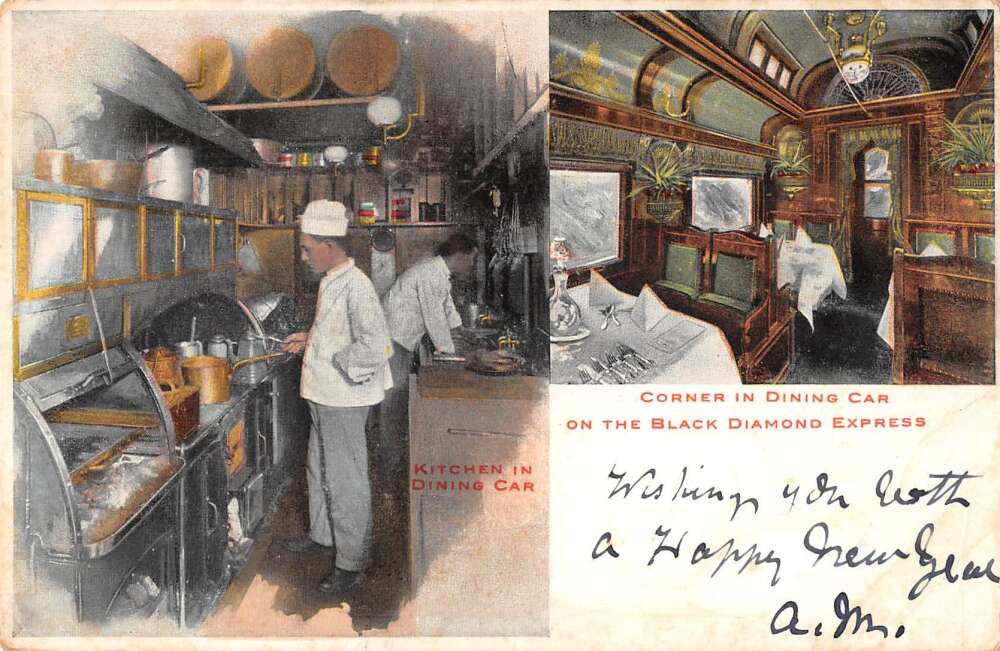 Kitchen in
Dining Car
Corner in Dining Car
on the Black Diamond Express
Wishing you both
a Happy New Year
A. M.